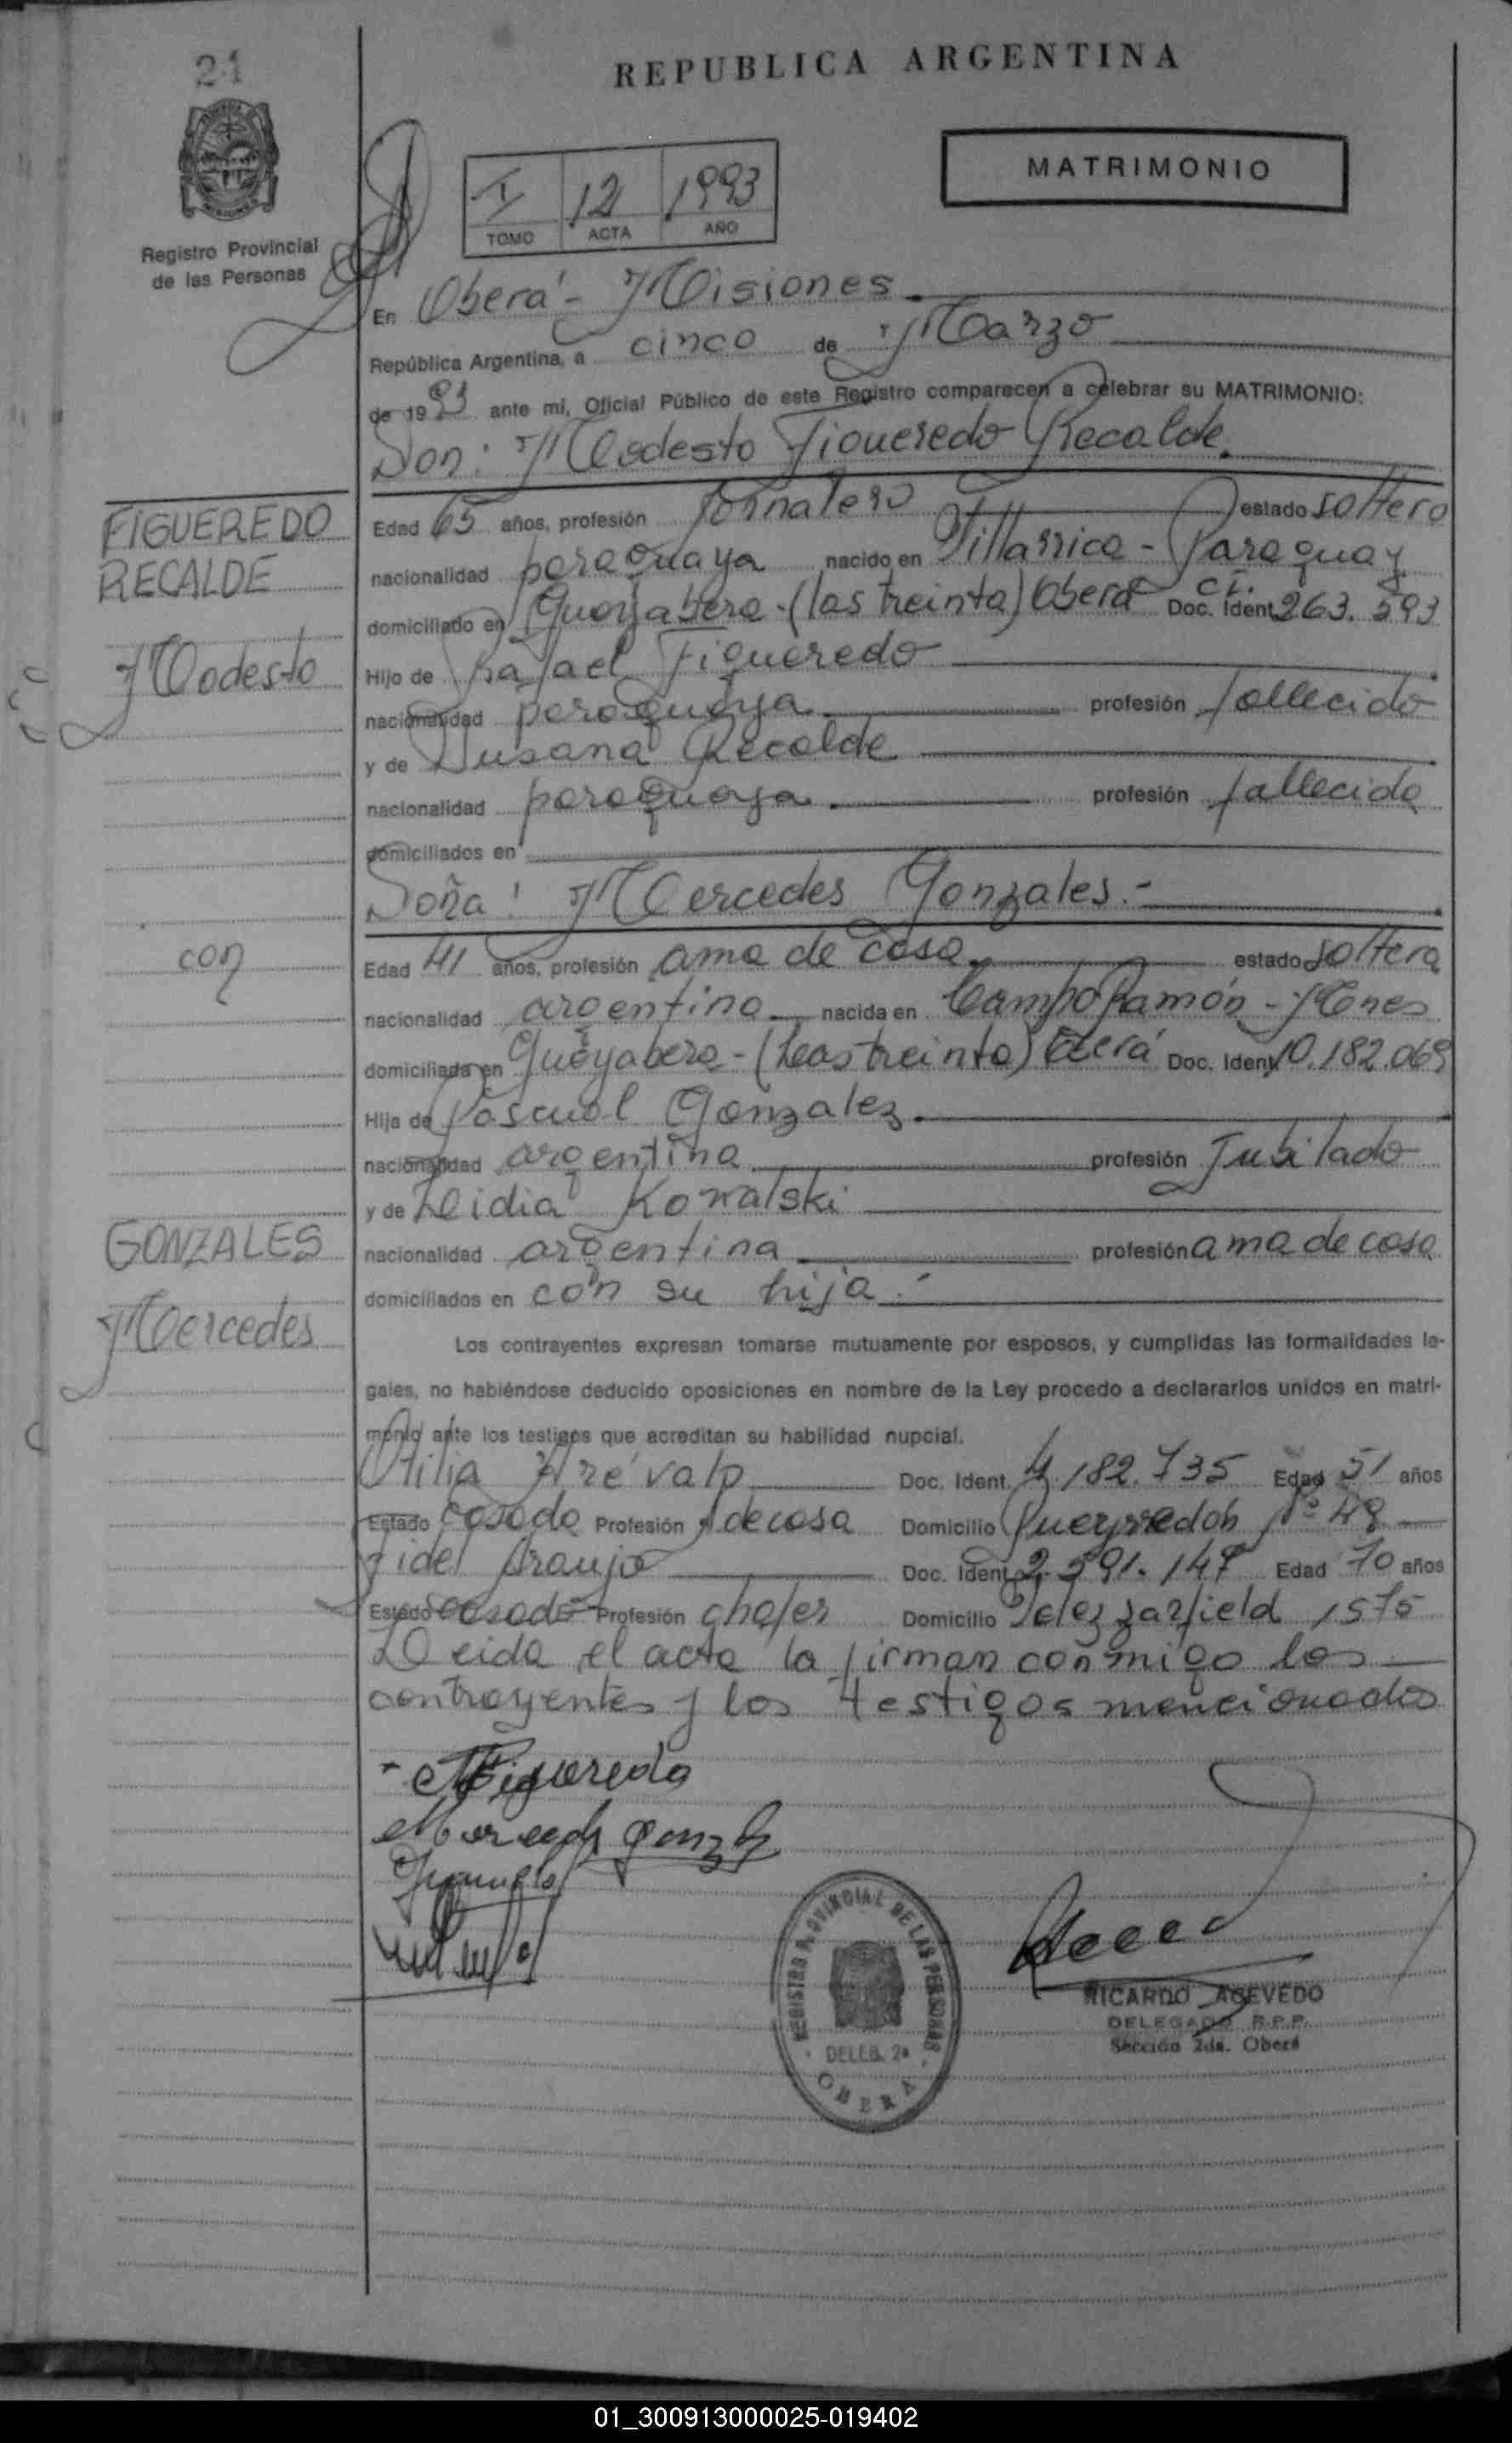 21
REPUBLICA ARGENTINA
MATRIMONIO
I 12 1993
TOMO ACTA AÑO
Registro Provincial
de las Personas
En Oberá - Misiones
República Argentina, a cinco de Marzo
de 1993 ante mi, Oficial Público de este Registro comparecen a celebrar su MATRIMONIO:
Don: Modesto Figueredo Recalde.
FIGUEREDO
RECALDE
Modesto
Edad 65 años, profesión Jornalero estado soltero
nacionalidad paraguaya nacido en Villarrica - Paraguay
domiciliado en Guayabera - (las treinta) Oberá Doc. Ident. C.I. 263.593
Hijo de Rafael Figueredo
nacionalidad paraguaya profesión fallecido
y de Susana Recalde
nacionalidad paraguaya profesión fallecida
domiciliados en
Doña: Mercedes Gonzales.-
con
Edad 41 años, profesión ama de casa estado soltera
nacionalidad argentina nacida en Campo Ramón - Mnes
domiciliada en Guayabera - (Las treinta) Oberá Doc. Ident. 10.182.069
Hija de Pascual Gonzalez
nacionalidad argentina profesión Jubilado
y de Lidia Kowalski
GONZALES
Mercedes
nacionalidad argentina profesión ama de casa
domiciliados en con su hija.-
Los contrayentes expresan tomarse mutuamente por esposos, y cumplidas las formalidades le-
gales, no habiéndose deducido oposiciones en nombre de la Ley procedo a declararlos unidos en matri-
monio ante los testigos que acreditan su habilidad nupcial.
Otilia Arévalo Doc. Ident. 4.182.735 Edad 51 años
Estado casada Profesión A de casa Domicilio Pueyrredón Nº 48
Fidel Araujo Doc. Ident. 2.591.147 Edad 70 años
Estado casado Profesión chofer Domicilio Velez Zarfield 1575
Leida el acta la firman conmigo los
contrayentes y los testigos mencionados
MFigueredo
Mercedes
REGISTRO PROVINCIAL DE LAS PERSONAS
DELEG. 2ª
OBERA
RICARDO ACEVEDO
DELEGADO R.P.P.
Sección 2da. Oberá
01_300913000025-019402